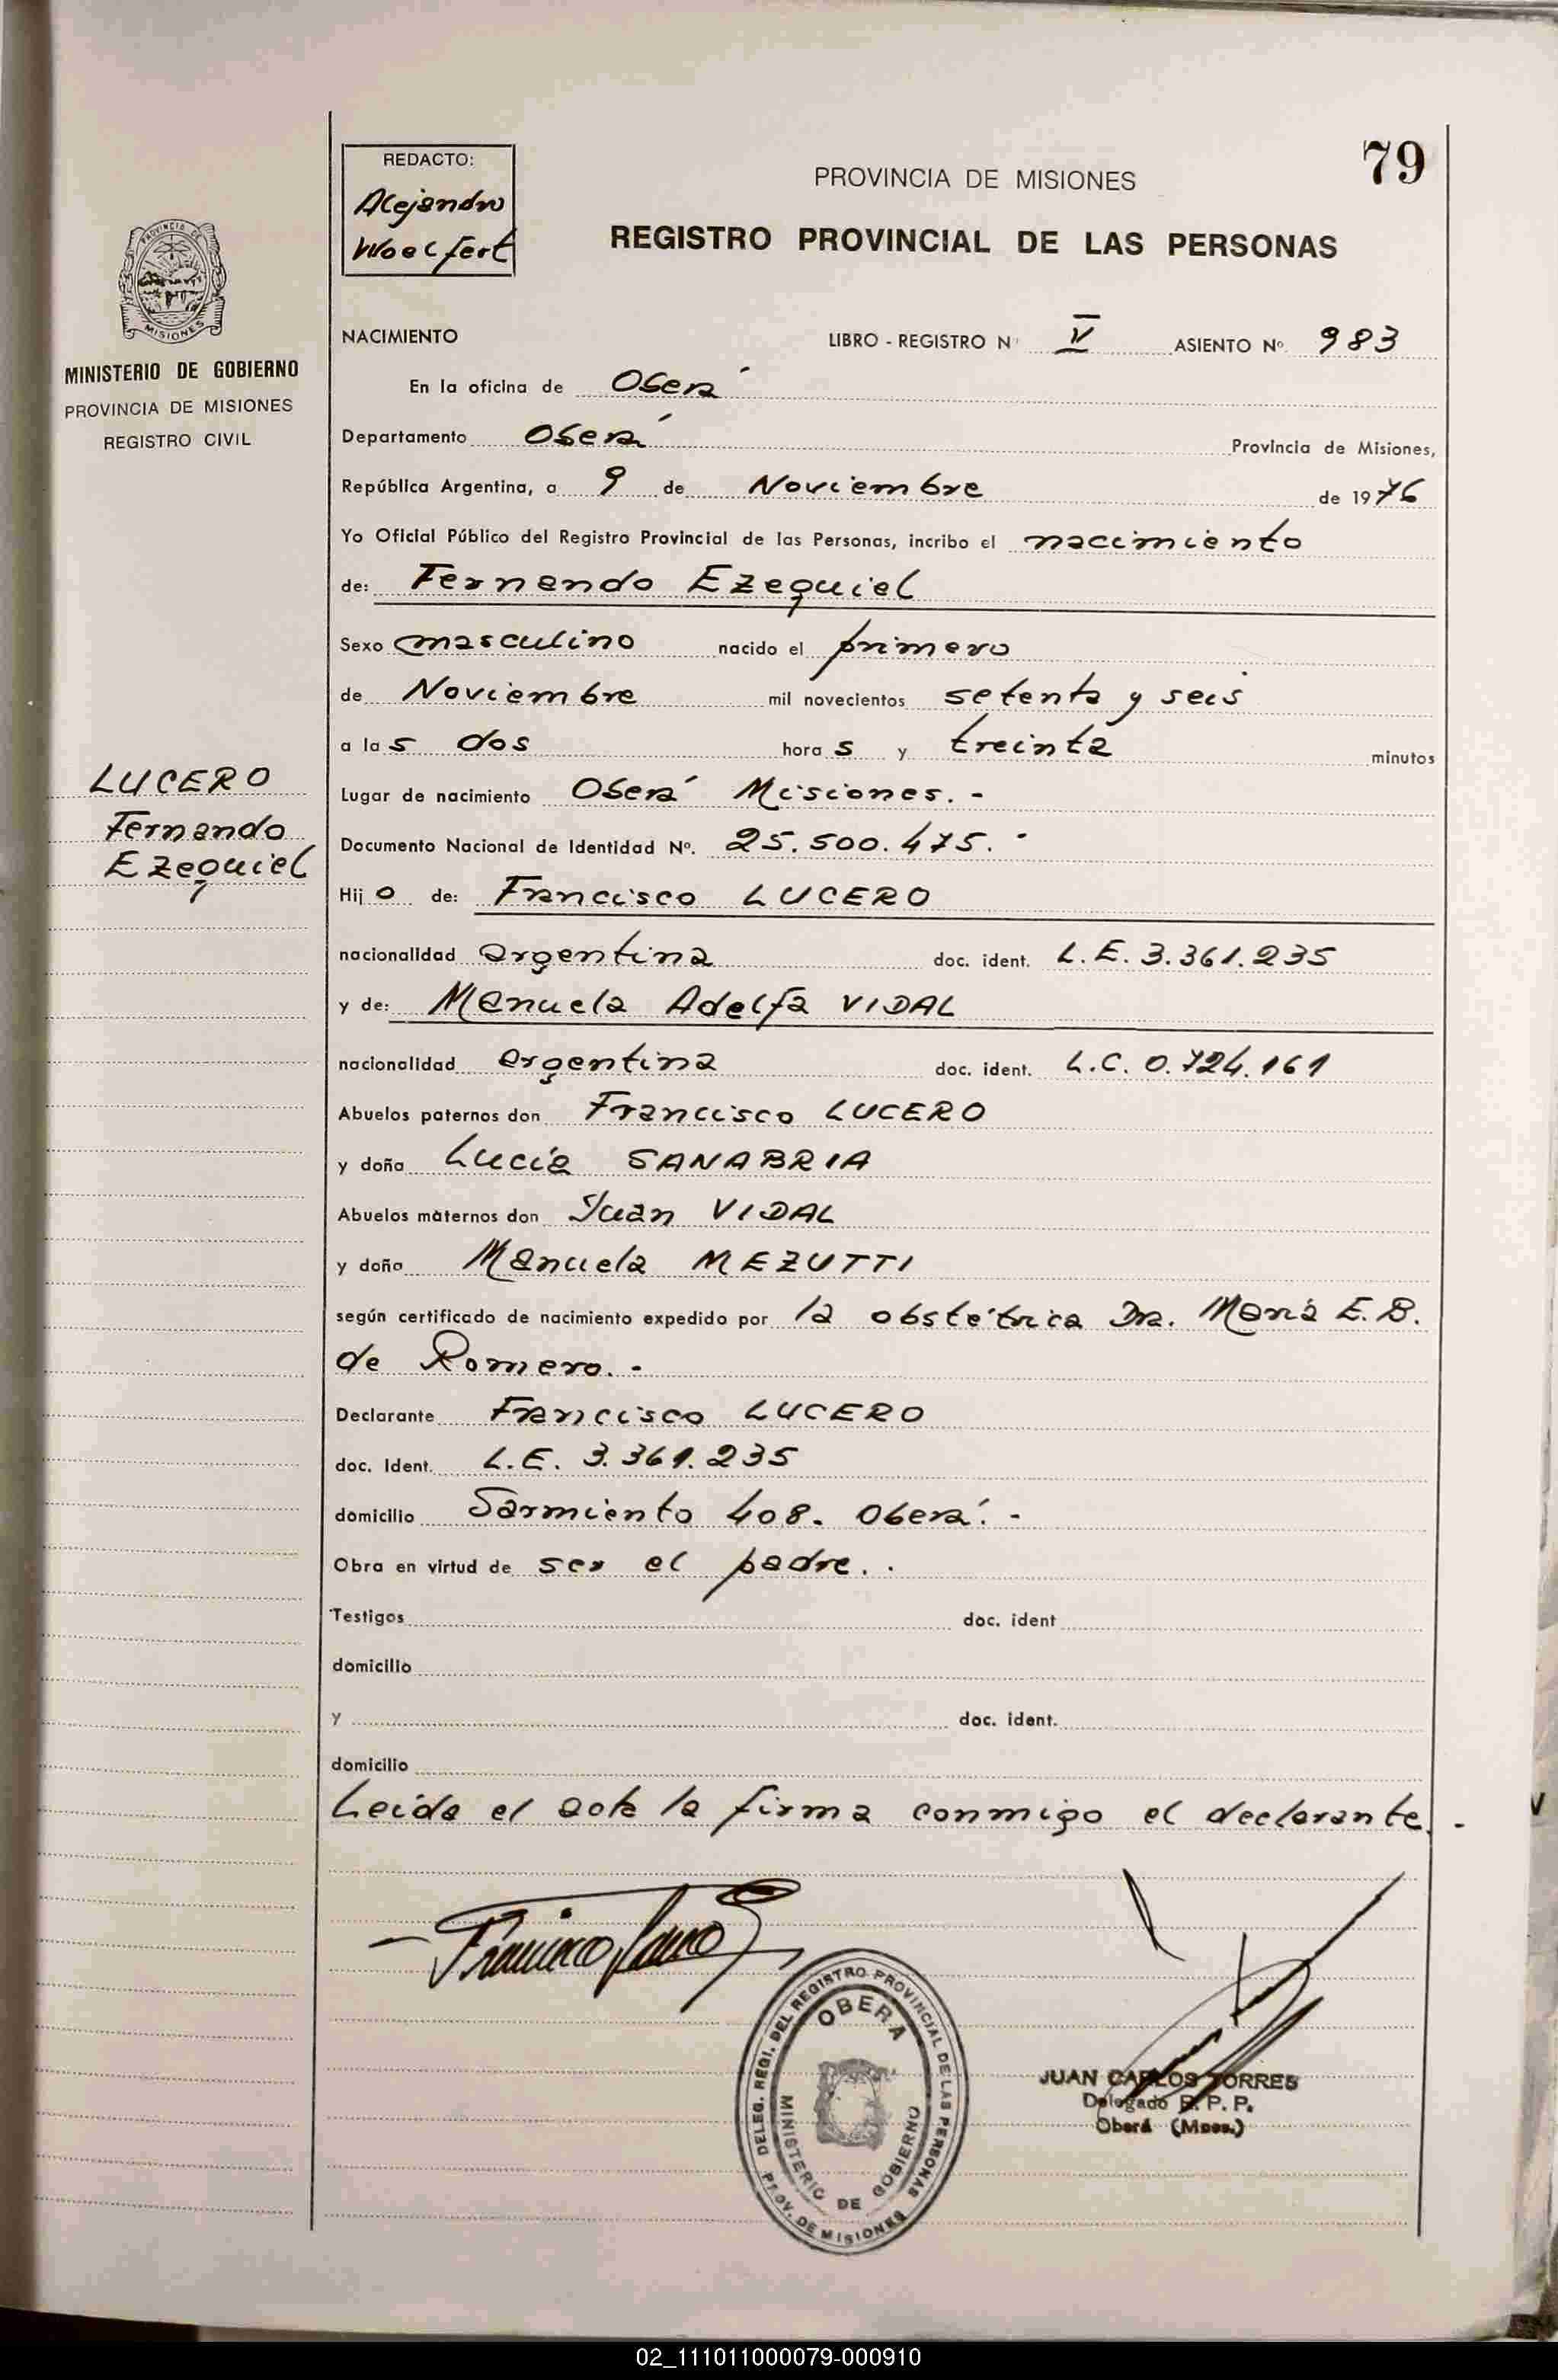 79
REDACTO:
Alejandro
Woelfert
PROVINCIA DE MISIONES
REGISTRO PROVINCIAL DE LAS PERSONAS
PROVINCIA DE
MISIONES
MINISTERIO DE GOBIERNO
PROVINCIA DE MISIONES
REGISTRO CIVIL
LUCERO
Fernando
Ezequiel
NACIMIENTO LIBRO - REGISTRO N° V ASIENTO Nº 983
En la oficina de Oberá
Departamento Oberá Provincia de Misiones,
República Argentina, a 9 de Noviembre de 1976
Yo Oficial Público del Registro Provincial de las Personas, incribo el nacimiento
de: Fernando Ezequiel
Sexo masculino nacido el primero
de Noviembre mil novecientos setenta y seis
a las dos horas y treinta minutos
Lugar de nacimiento Oberá Misiones. -
Documento Nacional de Identidad Nº. 25.500.475. -
Hijo de: Francisco LUCERO
nacionalidad argentina doc. ident. L.E. 3.361.235
y de: Manuela Adelfa VIDAL
nacionalidad argentina doc. ident. L.C. 0.724.161
Abuelos paternos don Francisco LUCERO
y doña Lucía SANABRIA
Abuelos maternos don Juan VIDAL
y doña Manuela MEZUTTI
según certificado de nacimiento expedido por la obstétrica Dra. María E. B.
de Romero. -
Declarante Francisco LUCERO
doc. Ident. L.E. 3.361.235
domicilio Sarmiento 408. Oberá. -
Obra en virtud de ser el padre. .
Testigos doc. ident
domicilio
y doc. ident.
domicilio
Leida el acta la firma conmigo el declarante. -
Francisco Lucero
DELEG. REGI. DEL REGISTRO PROVINCIAL DE LAS PERSONAS
PROV. DE MISIONES
OBERA
MINISTERIO DE GOBIERNO
JUAN CARLOS TORRES
Delegado R. P. P.
Oberá (Mnes.)
02_111011000079-000910